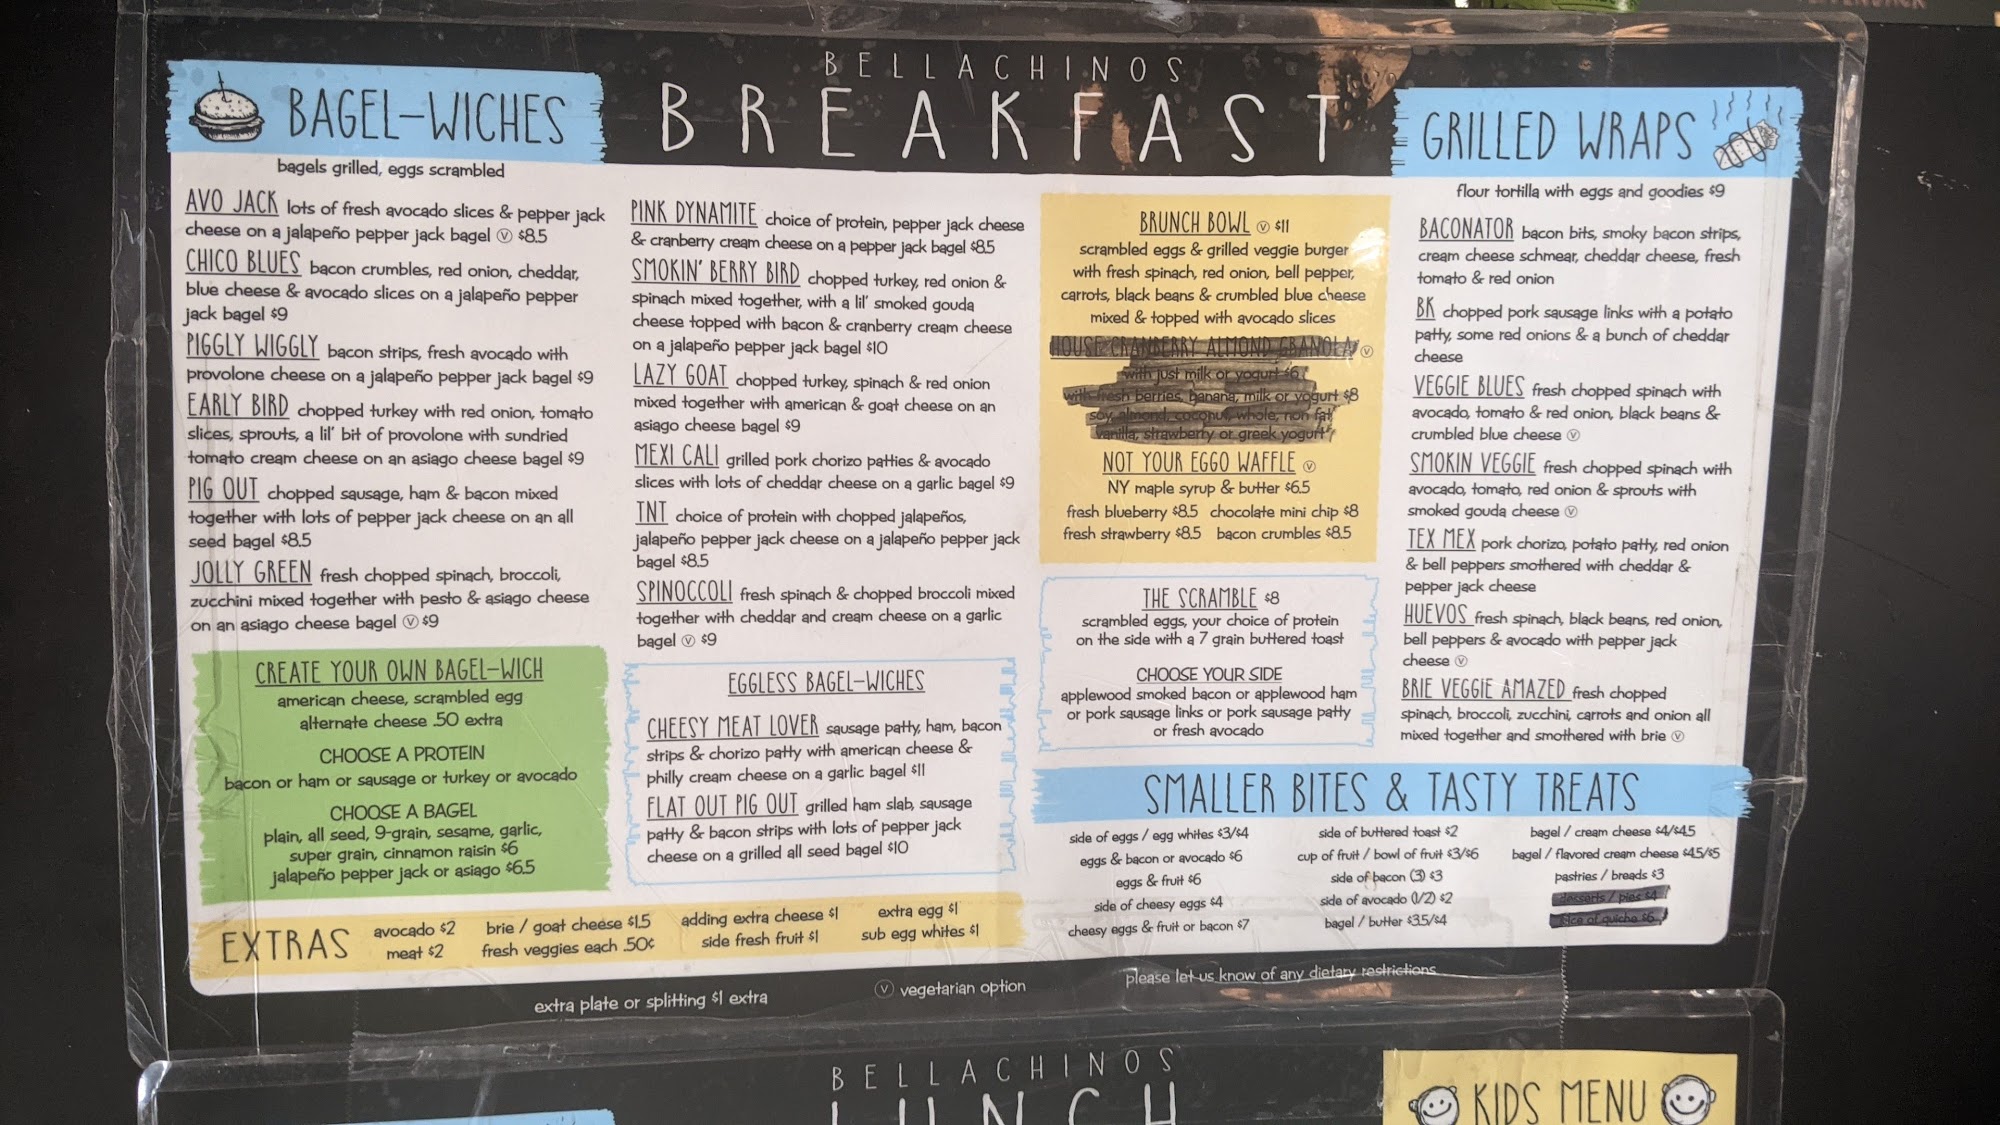 BELLACHINOS
BREAKFAST
BAGEL-WICHES
bagels grilled, eggs scrambled
AVO JACK lots of fresh avocado slices & pepper jack
cheese on a jalapeño pepper jack bagel Ⓥ $8.5
CHICO BLUES bacon crumbles, red onion, cheddar,
blue cheese & avocado slices on a jalapeño pepper
jack bagel $9
PIGGLY WIGGLY bacon strips, fresh avocado with
provolone cheese on a jalapeño pepper jack bagel $9
EARLY BIRD chopped turkey with red onion, tomato
slices, sprouts, a lil' bit of provolone with sundried
tomato cream cheese on an asiago cheese bagel $9
PIG OUT chopped sausage, ham & bacon mixed
together with lots of pepper jack cheese on an all
seed bagel $8.5
JOLLY GREEN fresh chopped spinach, broccoli,
zucchini mixed together with pesto & asiago cheese
on an asiago cheese bagel Ⓥ $9
CREATE YOUR OWN BAGEL-WICH
american cheese, scrambled egg
alternate cheese .50 extra
CHOOSE A PROTEIN
bacon or ham or sausage or turkey or avocado
CHOOSE A BAGEL
plain, all seed, 9-grain, sesame, garlic,
super grain, cinnamon raisin $6
jalapeño pepper jack or asiago $6.5
PINK DYNAMITE choice of protein, pepper jack cheese
& cranberry cream cheese on a pepper jack bagel $8.5
SMOKIN' BERRY BIRD chopped turkey, red onion &
spinach mixed together, with a lil' smoked gouda
cheese topped with bacon & cranberry cream cheese
on a jalapeño pepper jack bagel $10
LAZY GOAT chopped turkey, spinach & red onion
mixed together with american & goat cheese on an
asiago cheese bagel $9
MEXI CALI grilled pork chorizo patties & avocado
slices with lots of cheddar cheese on a garlic bagel $9
TNT choice of protein with chopped jalapeños,
jalapeño pepper jack cheese on a jalapeño pepper jack
bagel $8.5
SPINOCCOLI fresh spinach & chopped broccoli mixed
together with cheddar and cream cheese on a garlic
bagel Ⓥ $9
EGGLESS BAGEL-WICHES
CHEESY MEAT LOVER sausage patty, ham, bacon
strips & chorizo patty with american cheese &
philly cream cheese on a garlic bagel $11
FLAT OUT PIG OUT grilled ham slab, sausage
patty & bacon strips with lots of pepper jack
cheese on a grilled all seed bagel $10
BRUNCH BOWL Ⓥ $11
scrambled eggs & grilled veggie burger
with fresh spinach, red onion, bell pepper,
carrots, black beans & crumbled blue cheese
mixed & topped with avocado slices
HOUSE CRANBERRY ALMOND GRANOLA Ⓥ
with just milk or yogurt $6
with fresh berries, banana, milk or yogurt $8
soy, almond, coconut, whole, non fat
vanilla, strawberry or greek yogurt
NOT YOUR EGGO WAFFLE Ⓥ
NY maple syrup & butter $6.5
fresh blueberry $8.5 chocolate mini chip $8
fresh strawberry $8.5 bacon crumbles $8.5
THE SCRAMBLE $8
scrambled eggs, your choice of protein
on the side with a 7 grain buttered toast
CHOOSE YOUR SIDE
applewood smoked bacon or applewood ham
or pork sausage links or pork sausage patty
or fresh avocado
GRILLED WRAPS
flour tortilla with eggs and goodies $9
BACONATOR bacon bits, smoky bacon strips,
cream cheese schmear, cheddar cheese, fresh
tomato & red onion
BK chopped pork sausage links with a potato
patty, some red onions & a bunch of cheddar
cheese
VEGGIE BLUES fresh chopped spinach with
avocado, tomato & red onion, black beans &
crumbled blue cheese Ⓥ
SMOKIN VEGGIE fresh chopped spinach with
avocado, tomato, red onion & sprouts with
smoked gouda cheese Ⓥ
TEX MEX pork chorizo, potato patty, red onion
& bell peppers smothered with cheddar &
pepper jack cheese
HUEVOS fresh spinach, black beans, red onion,
bell peppers & avocado with pepper jack
cheese Ⓥ
BRIE VEGGIE AMAZED fresh chopped
spinach, broccoli, zucchini, carrots and onion all
mixed together and smothered with brie Ⓥ
SMALLER BITES & TASTY TREATS
side of eggs / egg whites $3/$4
eggs & bacon or avocado $6
eggs & fruit $6
side of cheesy eggs $4
cheesy eggs & fruit or bacon $7
side of buttered toast $2
cup of fruit / bowl of fruit $3/$6
side of bacon (3) $3
side of avocado (1/2) $2
bagel / butter $3.5/$4
bagel / cream cheese $4/$4.5
bagel / flavored cream cheese $4.5/$5
pastries / breads $3
desserts / pies $4
slice of quiche $6
EXTRAS
avocado $2
meat $2
brie / goat cheese $1.5
fresh veggies each .50¢
adding extra cheese $1
side fresh fruit $1
extra egg $1
sub egg whites $1
extra plate or splitting $1 extra
Ⓥ vegetarian option
please let us know of any dietary restrictions
BELLACHINOS
LUNCH
KIDS MENU